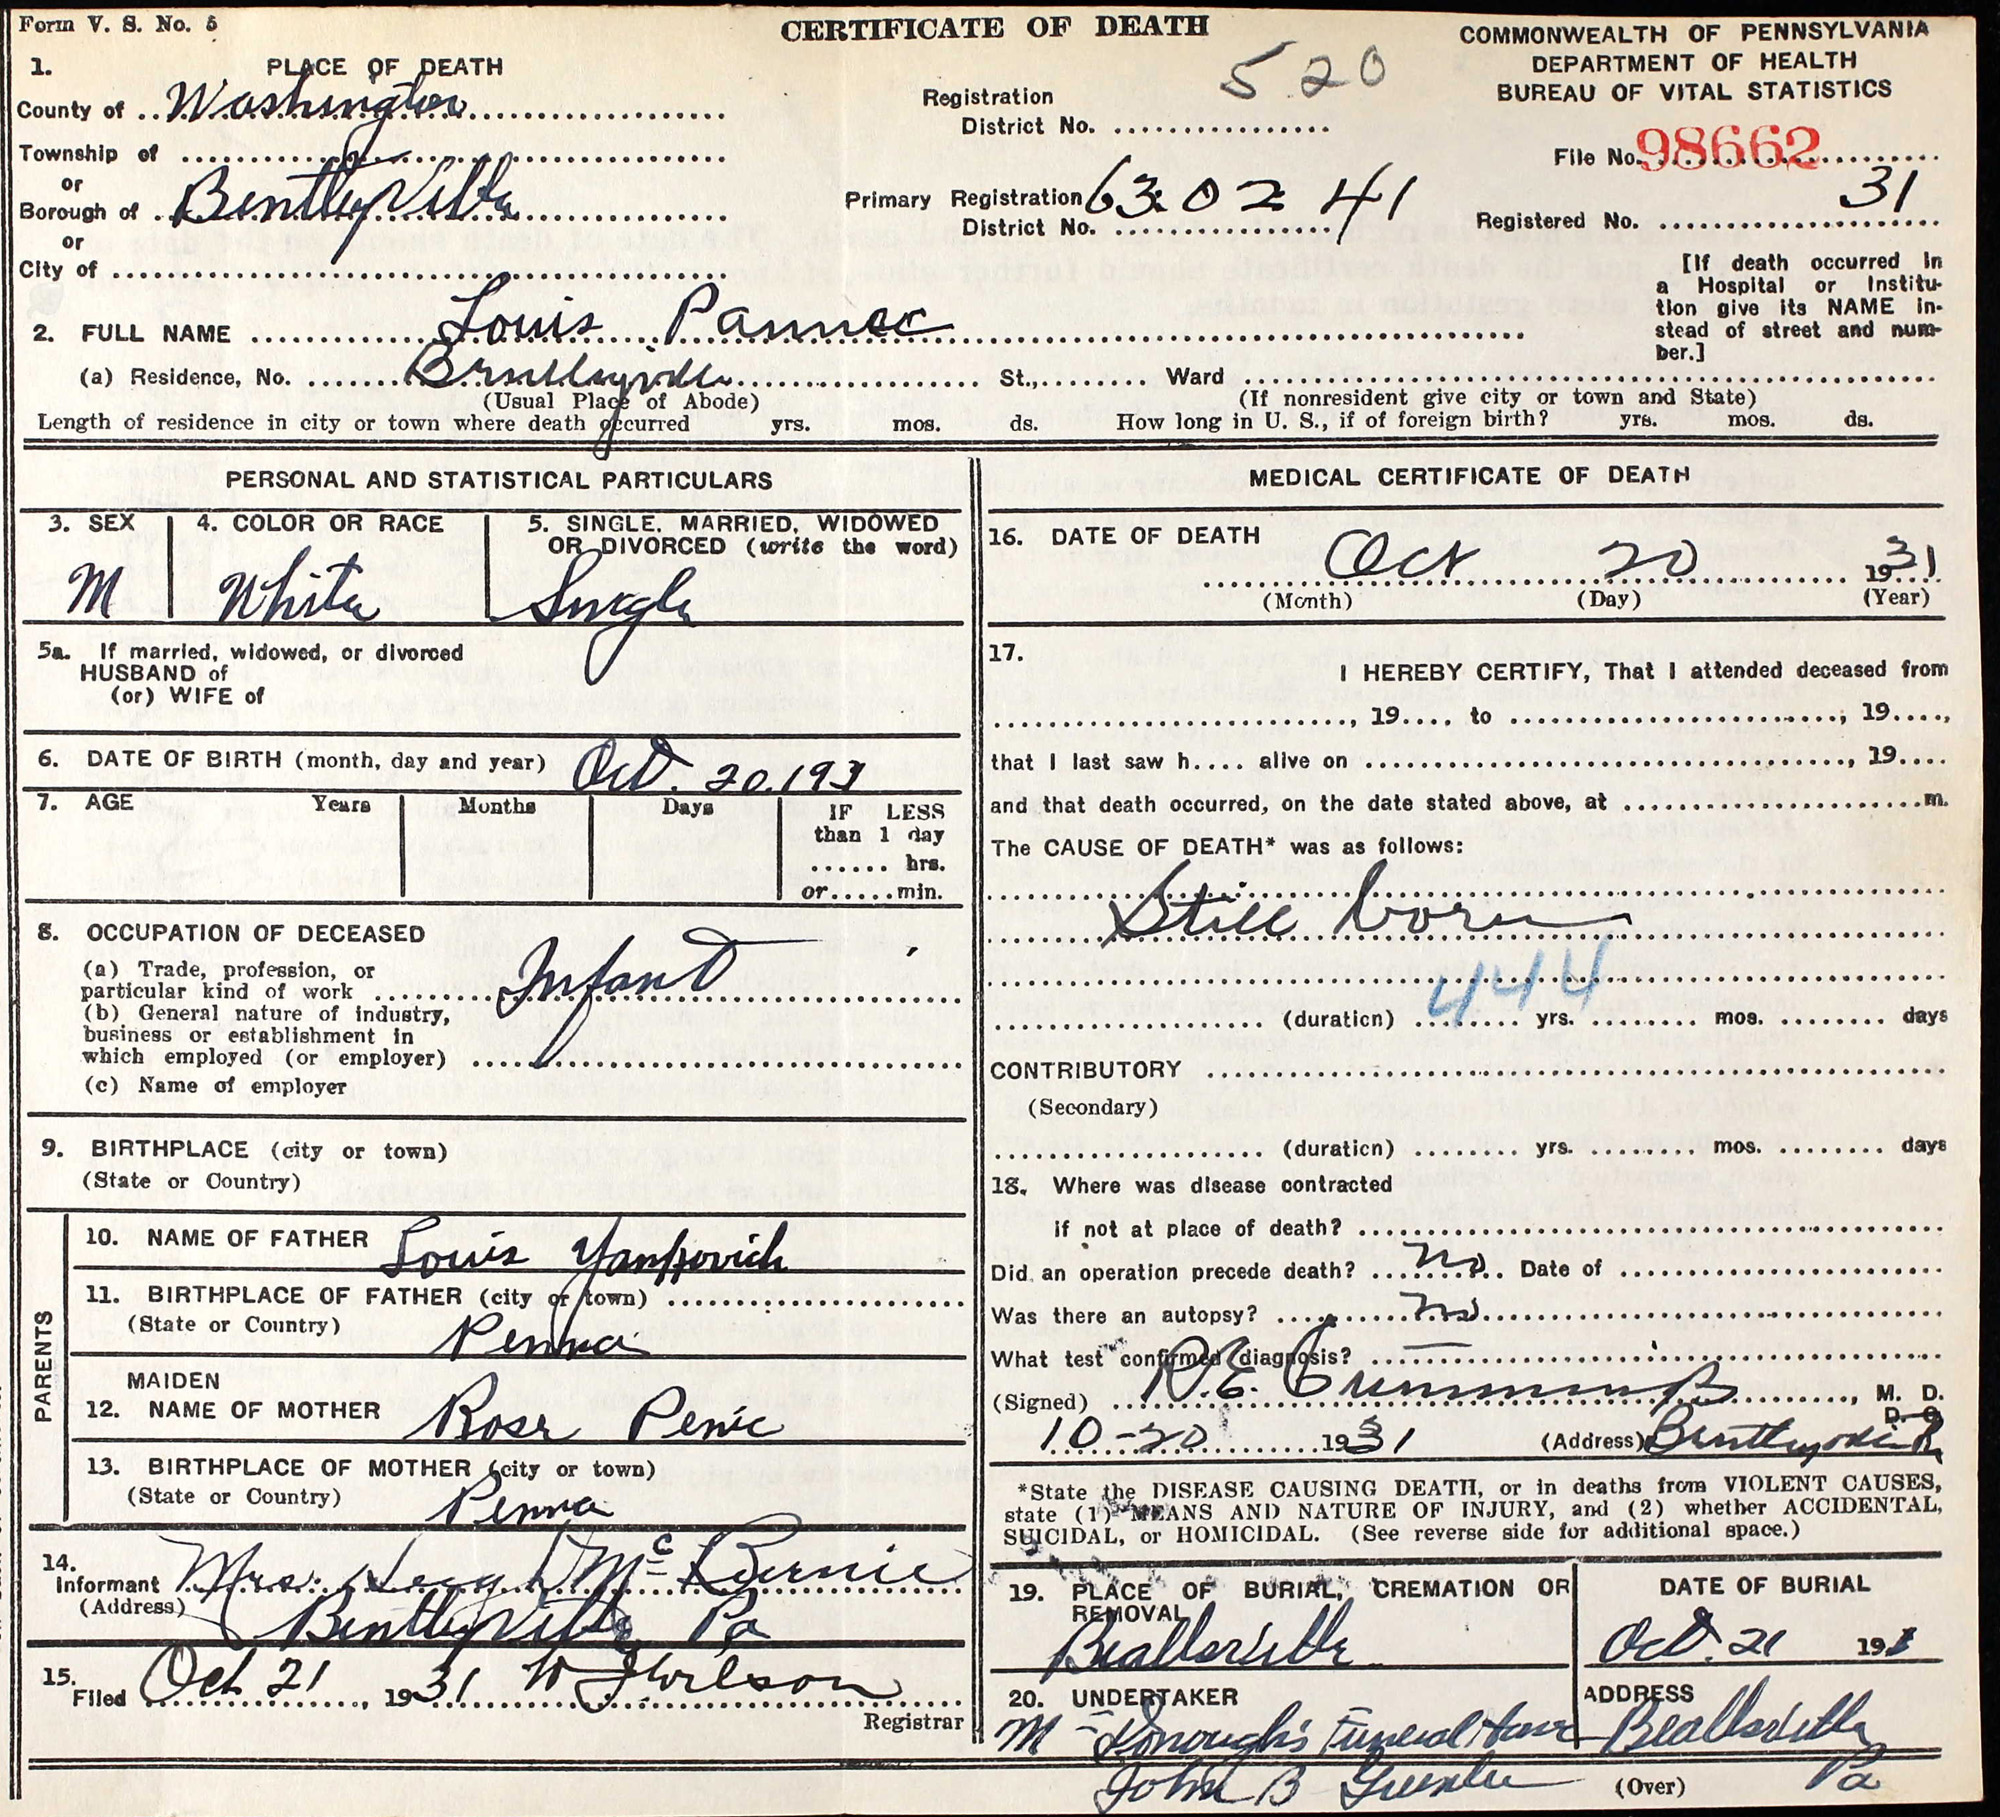 Form V. S. No. 5
CERTIFICATE OF DEATH
COMMONWEALTH OF PENNSYLVANIA
DEPARTMENT OF HEALTH
BUREAU OF VITAL STATISTICS
1. PLACE OF DEATH
County of Washington
Township of
or
Borough of Bentleyville
or
City of
520
Registration
District No.
Primary Registration
District No. 63.02.41
File No. 98662
Registered No. 31
[If death occurred in
a Hospital or Institu-
tion give its NAME in-
stead of street and num-
ber.]
2. FULL NAME Louis
(a) Residence, No. Bentleyville St., Ward
(Usual Place of Abode) (If nonresident give city or town and State)
Length of residence in city or town where death occurred yrs. mos. ds. How long in U. S., if of foreign birth? yrs. mos. ds.
PERSONAL AND STATISTICAL PARTICULARS
3. SEX
M
4. COLOR OR RACE
White
5. SINGLE, MARRIED, WIDOWED
OR DIVORCED (write the word)
Single
5a. If married, widowed, or divorced
HUSBAND of
(or) WIFE of
6. DATE OF BIRTH (month, day and year) Oct. 20.193
7. AGE Years Months Days IF LESS
than 1 day
hrs.
or.....min.
8. OCCUPATION OF DECEASED
(a) Trade, profession, or
particular kind of work Infant
(b) General nature of industry,
business or establishment in
which employed (or employer)
(c) Name of employer
9. BIRTHPLACE (city or town)
(State or Country)
PARENTS
10. NAME OF FATHER Louis Yankovich
11. BIRTHPLACE OF FATHER (city or town)
(State or Country) Penna
MAIDEN
12. NAME OF MOTHER Rose Penic
13. BIRTHPLACE OF MOTHER (city or town)
(State or Country) Penna
14.
Informant Mrs.
(Address) Bentleyville Pa
15.
Filed Oct 21, 1931 W J Wilson
Registrar
MEDICAL CERTIFICATE OF DEATH
16. DATE OF DEATH
Oct 20 1931
(Month) (Day) (Year)
17.
I HEREBY CERTIFY, That I attended deceased from
, 19.... to , 19....,
that I last saw h.... alive on , 19....
and that death occurred, on the date stated above, at m.
The CAUSE OF DEATH* was as follows:
Still born
444
(duration) yrs. mos. days
CONTRIBUTORY
(Secondary)
(duration) yrs. mos. days
18. Where was disease contracted
if not at place of death?
Did an operation precede death? no Date of
Was there an autopsy? no
What test confirmed diagnosis? —
(Signed) R. E. , M. D.
D. O.
10-20 1931 (Address) Bentleyville Pa
*State the DISEASE CAUSING DEATH, or in deaths from VIOLENT CAUSES,
state (1) MEANS AND NATURE OF INJURY, and (2) whether ACCIDENTAL,
SUICIDAL, or HOMICIDAL. (See reverse side for additional space.)
19. PLACE OF BURIAL, CREMATION OR
REMOVAL
Beallsville
DATE OF BURIAL
Oct. 21 193
20. UNDERTAKER
McDonough's Funeral Home
John B
ADDRESS
Beallsville
Pa
(Over)